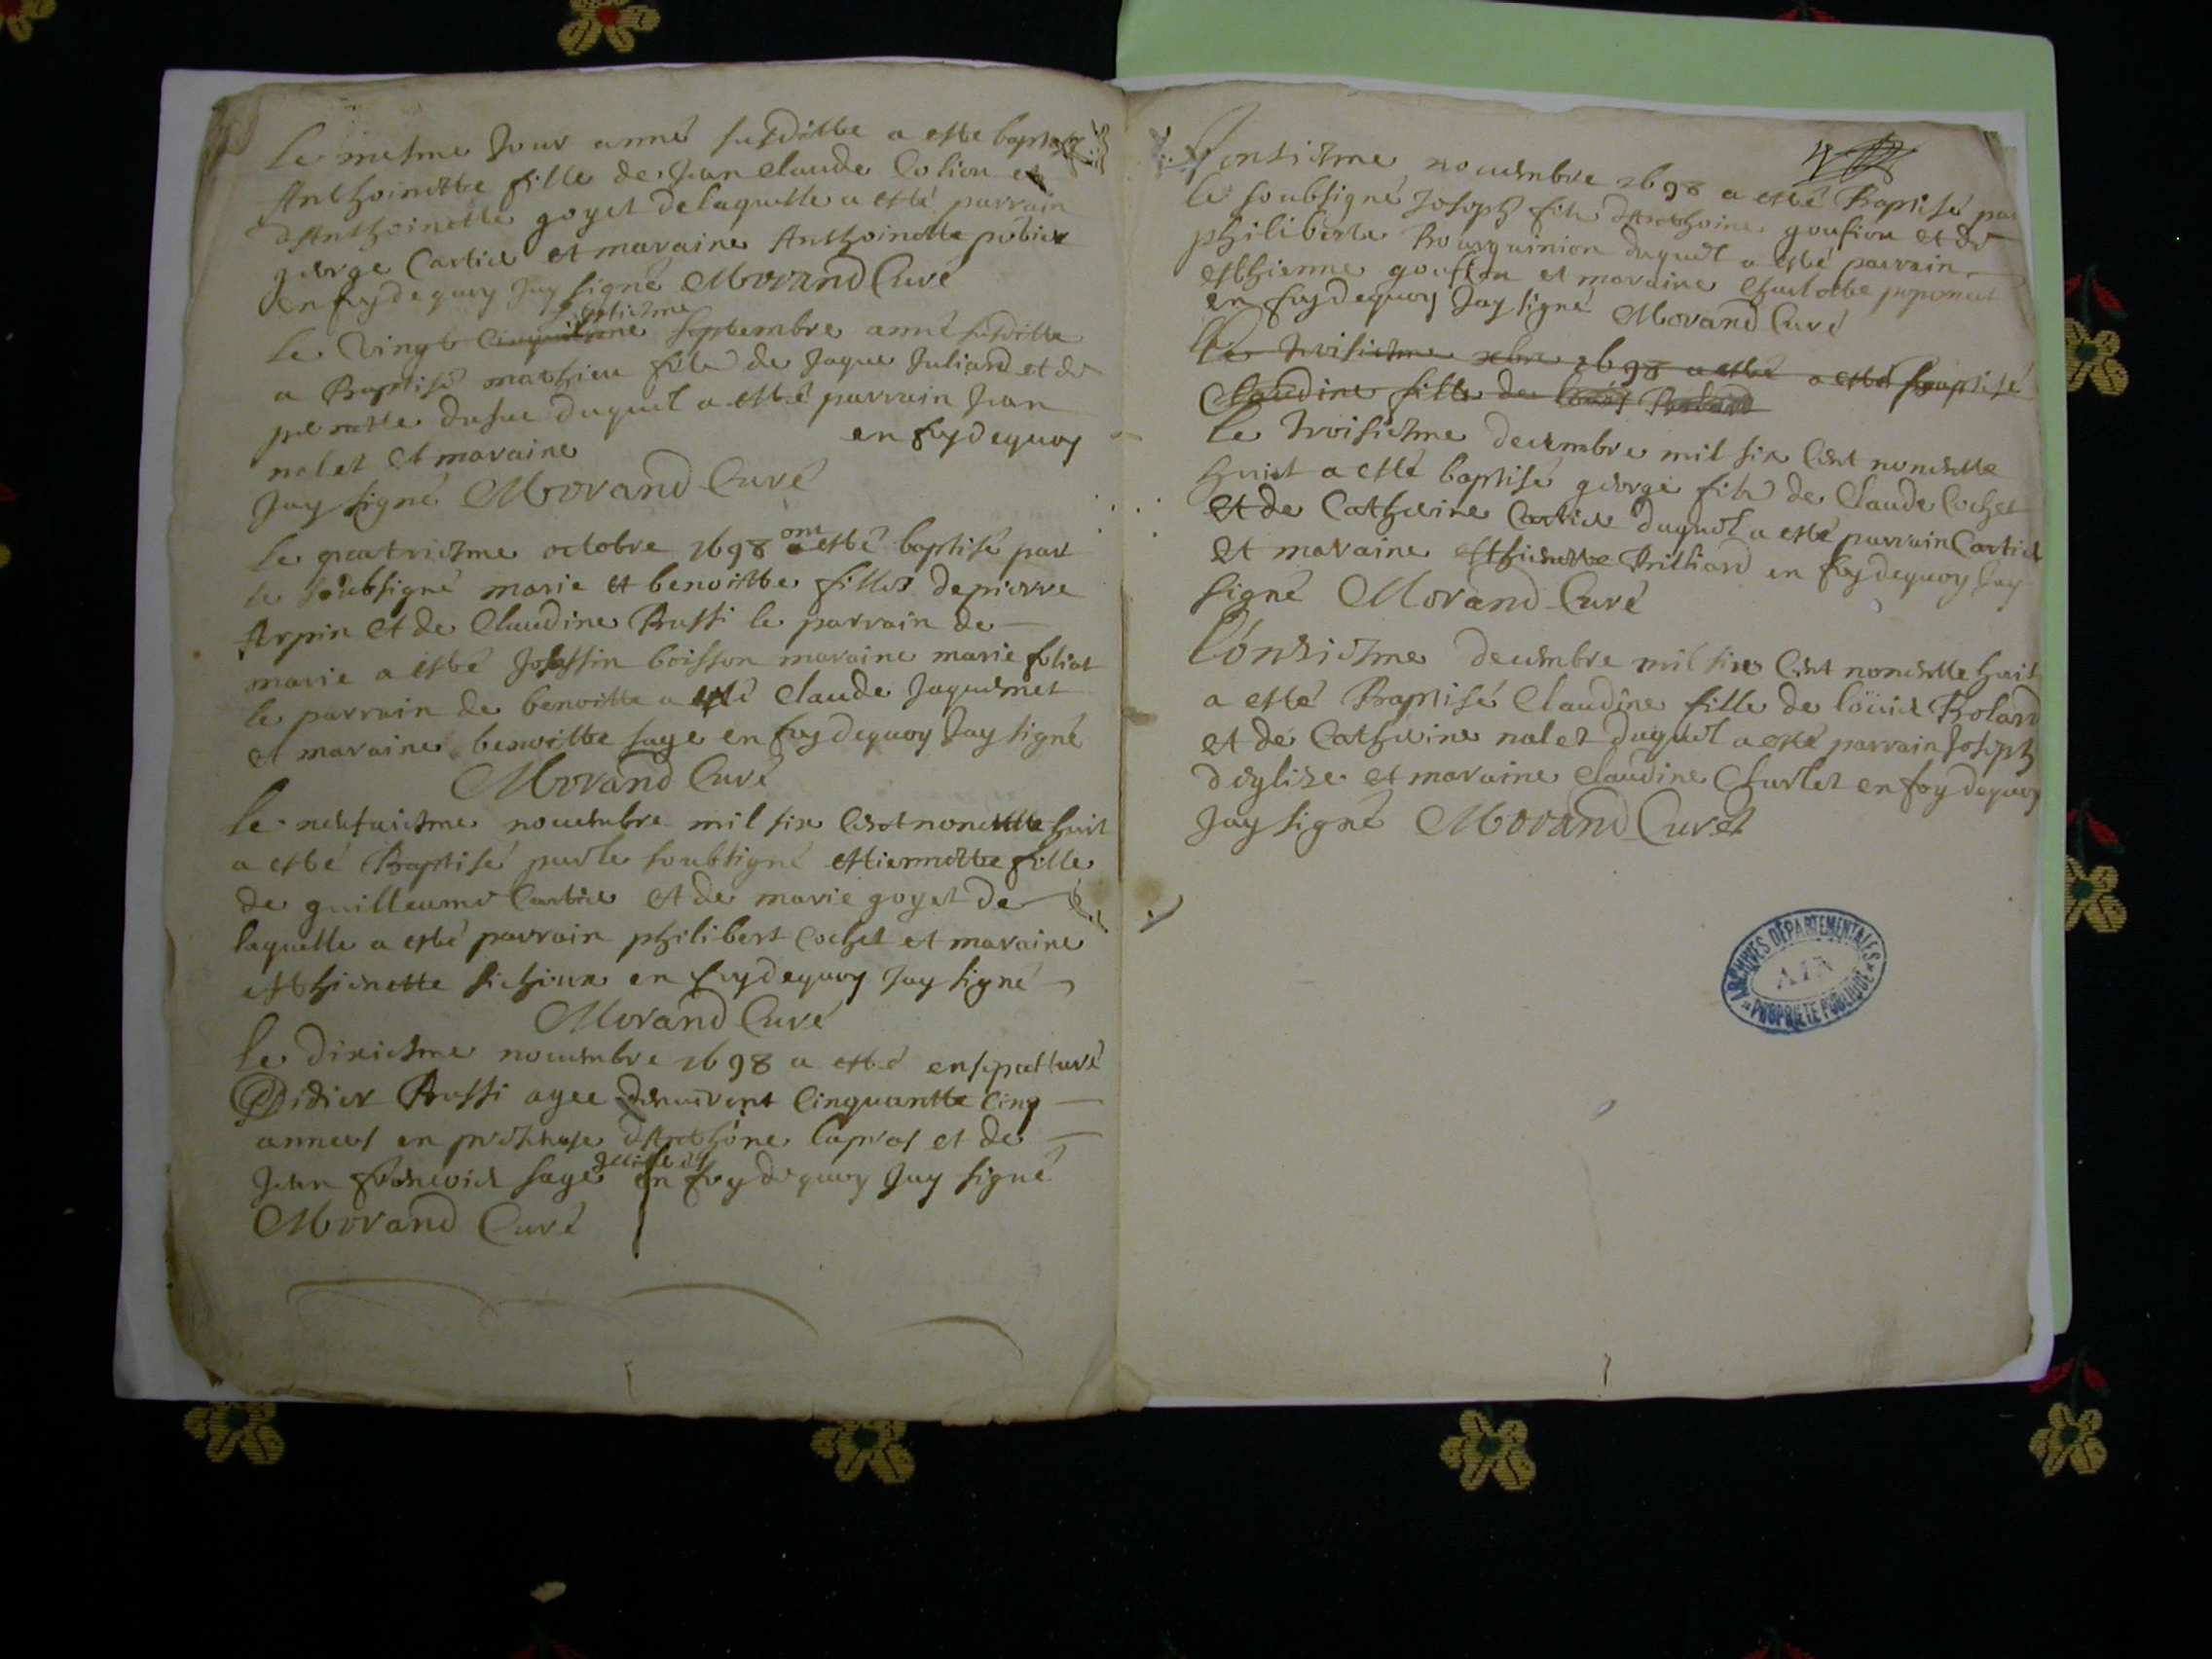 Le mesme Jour anné susditte a este baptisé
Anthoinette fille de Jean Claude Colion et
d'Anthoinette goyet de laquelle a esté parrain
george Cartier et maraine Anthoinette
en foy de quoy Jay signé Morand Curé
Le Vingt septembre anné susditte
a Baptisé mathieu fils de Jaque Juliard et de
pernette dufue duquel a esté parrain Jean
nalet et maraine en foy de quoy
Jay signé Morand Curé
Le quatriesme octobre 1698 ont esté baptisé part
le soubsigné marie et benoitte filles de pierre
Arpin et de Claudine Bussi le parrain de
marie a esté boisson maraine marie foliat
le parrain de benoitte a esté Claude Jaquemet
et maraine benoitte sage en foy de quoy Jay signé
Morand Curé
Le neufuiesme nouembre mil six Cent nonentte huit
a esté Baptisé par le soubsigné estiennette fille
de guilleaume Cartier et de marie goyet de
laquelle a esté parrain philibert Cochet et maraine
esthienette en foy de quoy Jay signé
Morand Curé
Le dixiesme nouembre 1698 a esté ensepulturé
Didier Bussi agee denuiront Cinquantte Cinq
annees en presence d'Anthoine et de
Jean sage en foy de quoy Jay signé
Morand Curé
Lonziesme nouembre 1698 a esté Baptisé par
le soubsigné Joseph fils d'Anthoine goufion et de
philiberte Bourguinion duquel a esté parrain
esthienne goufion et maraine Charlotte
en foy de quoy Jay signé Morand Curé
Le troisiesme xbre 1698 a esté a esté baptisé
Claudine fille de Louis Roland
Le troisiesme decembre mil six Cent nonentte
huict a esté baptisé george fils de Claude Cochet
et de Catherine Cartier duquel a esté parrain Cartier
et maraine esthienette Brilliard en foy de quoy Jay
signé Morand Curé
Lonziesme decembre mil six Cent nonentte huit
a esté Baptisé Claudine fille de loüis Roland
et de Catherine nalet duquel a esté parrain Joseph
deglise et maraine Claudine Charlet en foy de quoy
Jay signé Morand Curet
ARCHIVES DÉPARTEMENTALES
AIN
PROPRIÉTÉ PUBLIQUE